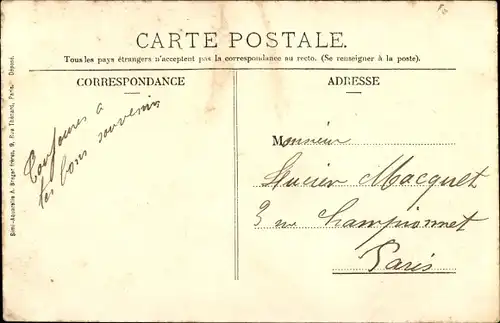 CARTE POSTALE.
Tous les pays étrangers n'acceptent pas la correspondance au recto. (Se renseigner à la poste).
CORRESPONDANCE
Toujours à
tes bons souvenirs
ADRESSE
Monsieur
Lucien Macquet
3 rue Championnet
Paris
Semi-Aquarelle A. Breger frères, 9, Rue Thénard, Paris. Déposé.